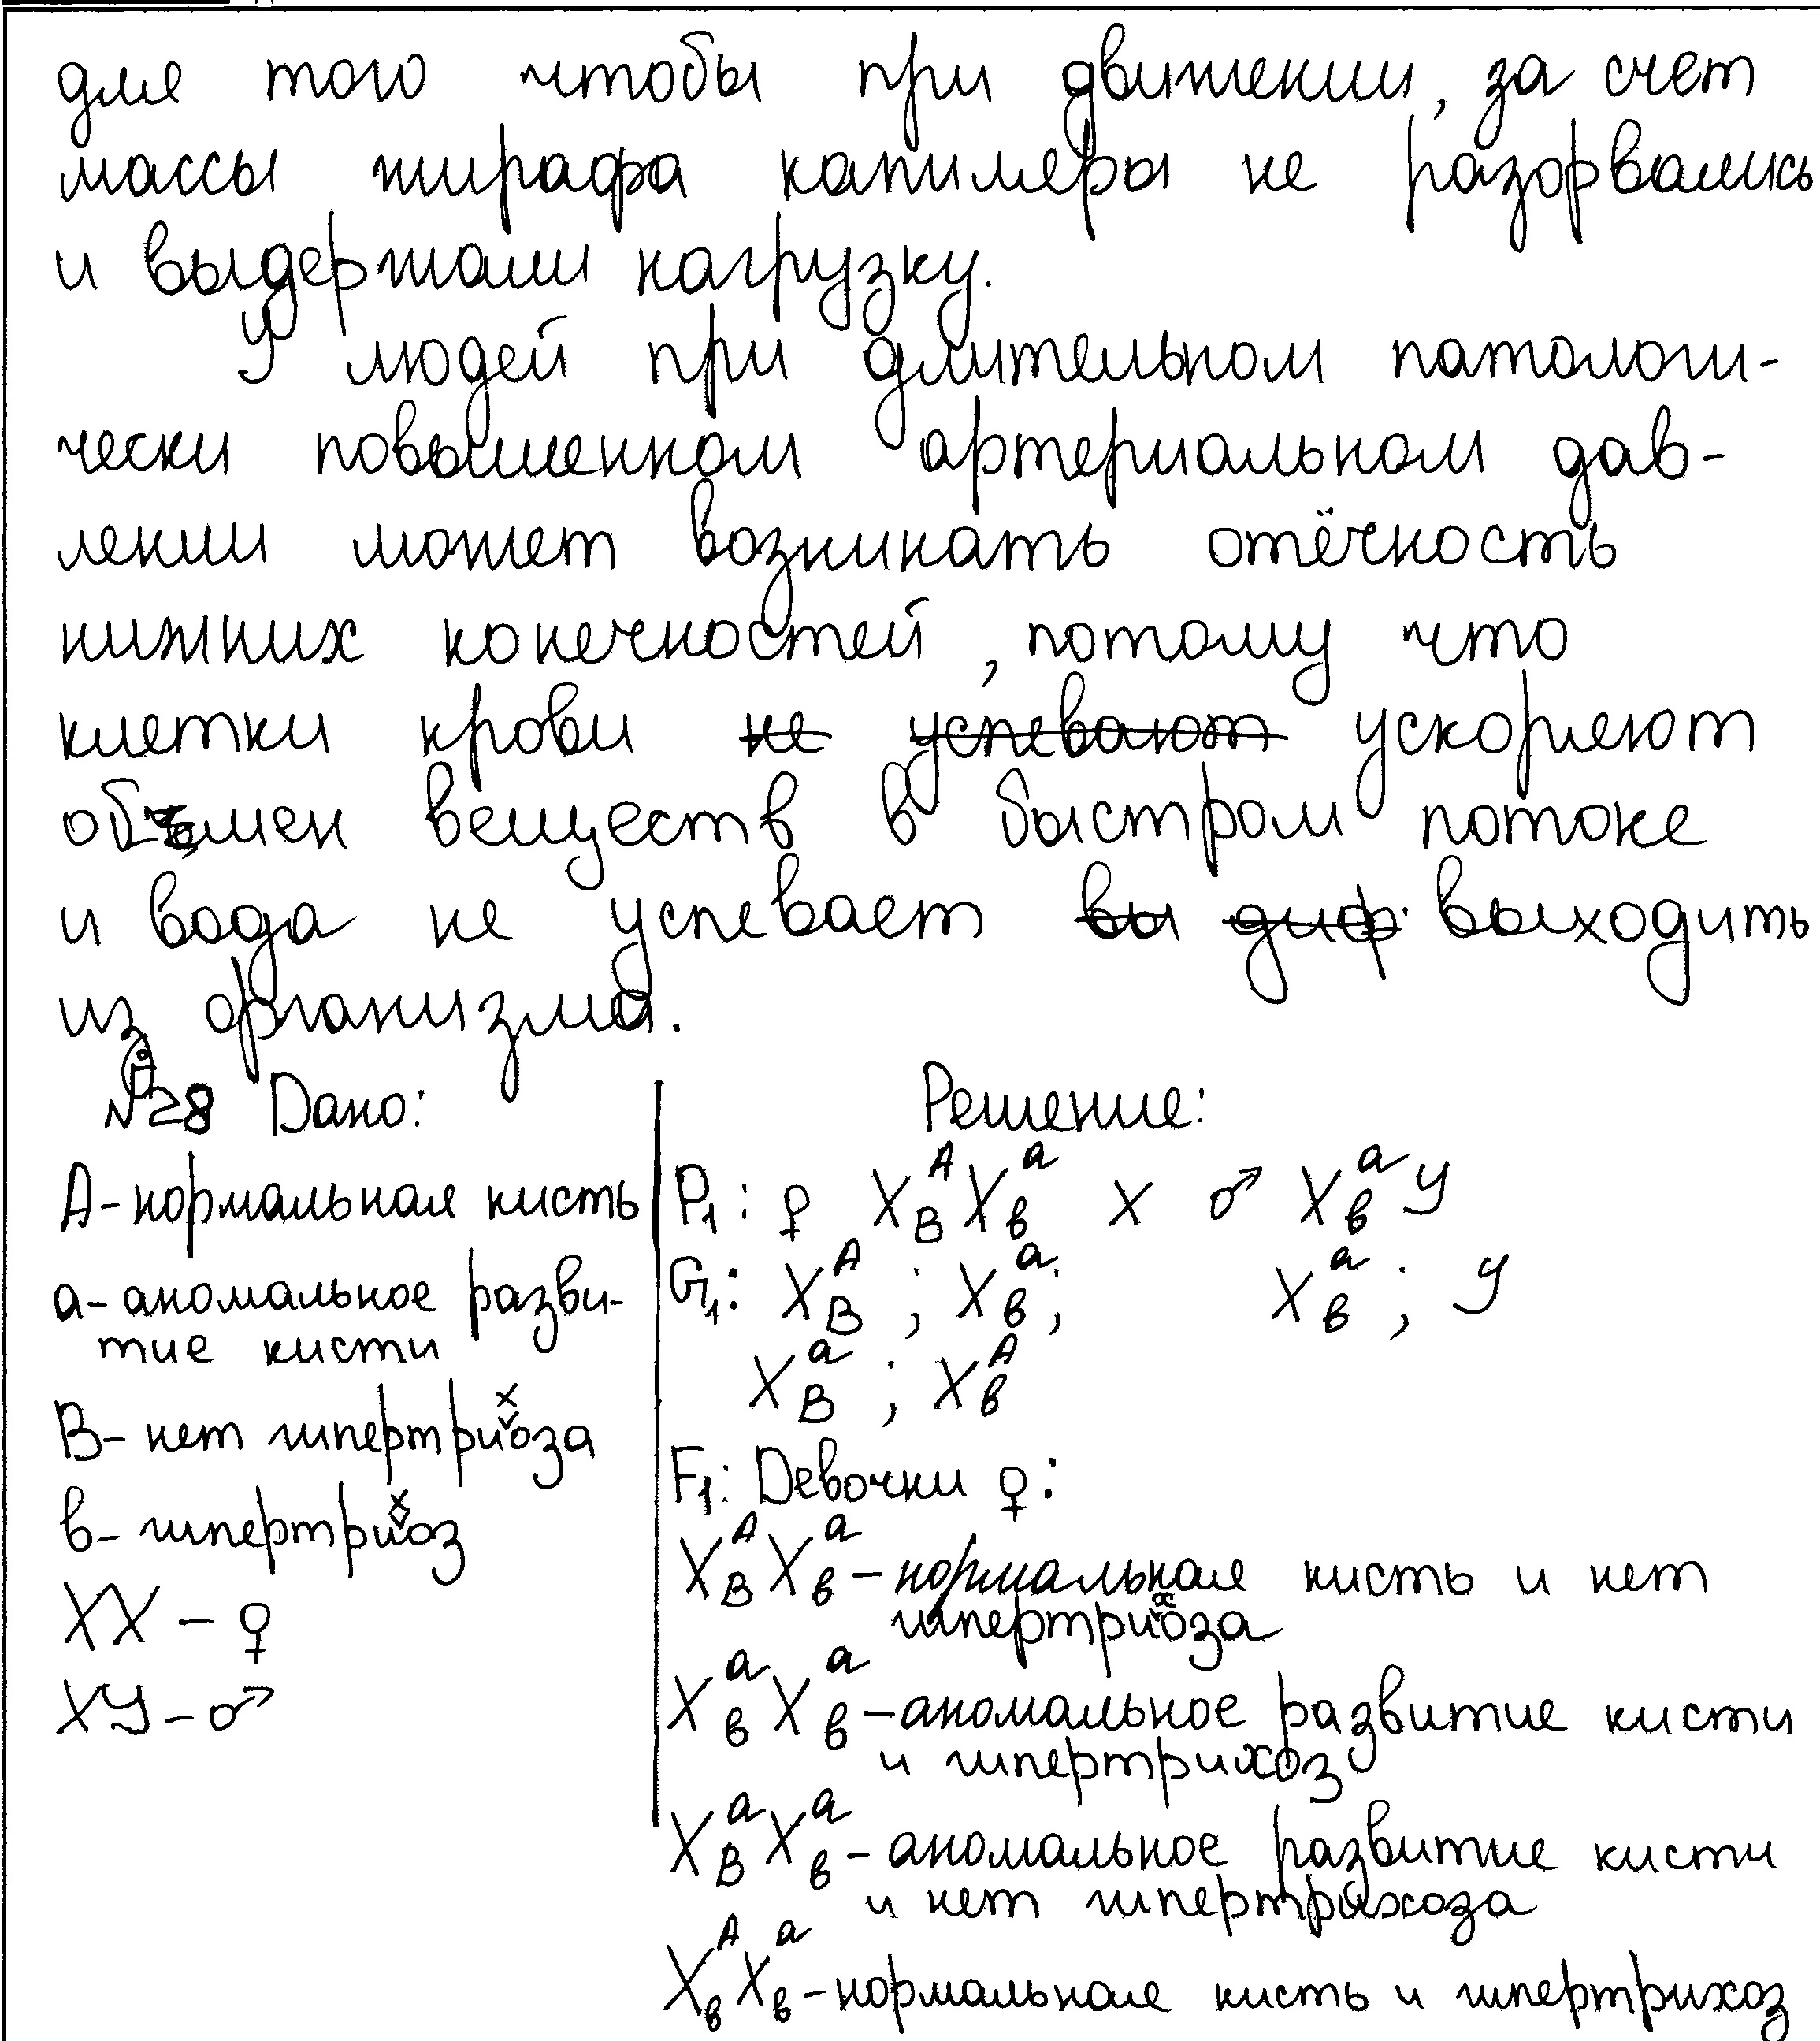 для того чтобы при движении, за счет
массы жирафа капиляры не разорвались
и выдержали нагрузку.
У людей при длительном патологи-
чески повышенном артериальном дав-
лении может возникать отёчность
нижних конечностей, потому что
клетки крови не успевают ускоряют
обмен веществ в быстром потоке
и вода не успевает вы диф выходить
из организма.
№28 Дано:
А - нормальная кисть
а - аномальное разви-
тие кисти
В - нет гипертрихоза
в - гипертрихоз
XX - ♀
XY - ♂
Решение:
P₁: ♀ Xᴬ_B Xᵃ_в x ♂ Xᵃ_в У
G₁: Xᴬ_B ; Xᵃ_в ; Xᵃ_в ; У
Xᵃ_B ; Xᴬ_в
F₁: Девочки ♀:
Xᴬ_B Xᵃ_в - нормальная кисть и нет
гипертрихоза
Xᵃ_в Xᵃ_в - аномальное развитие кисти
и гипертрихоз
Xᵃ_B Xᵃ_в - аномальное развитие кисти
и нет гипертрихоза
Xᴬ_в Xᵃ_в - нормальная кисть и гипертрихоз